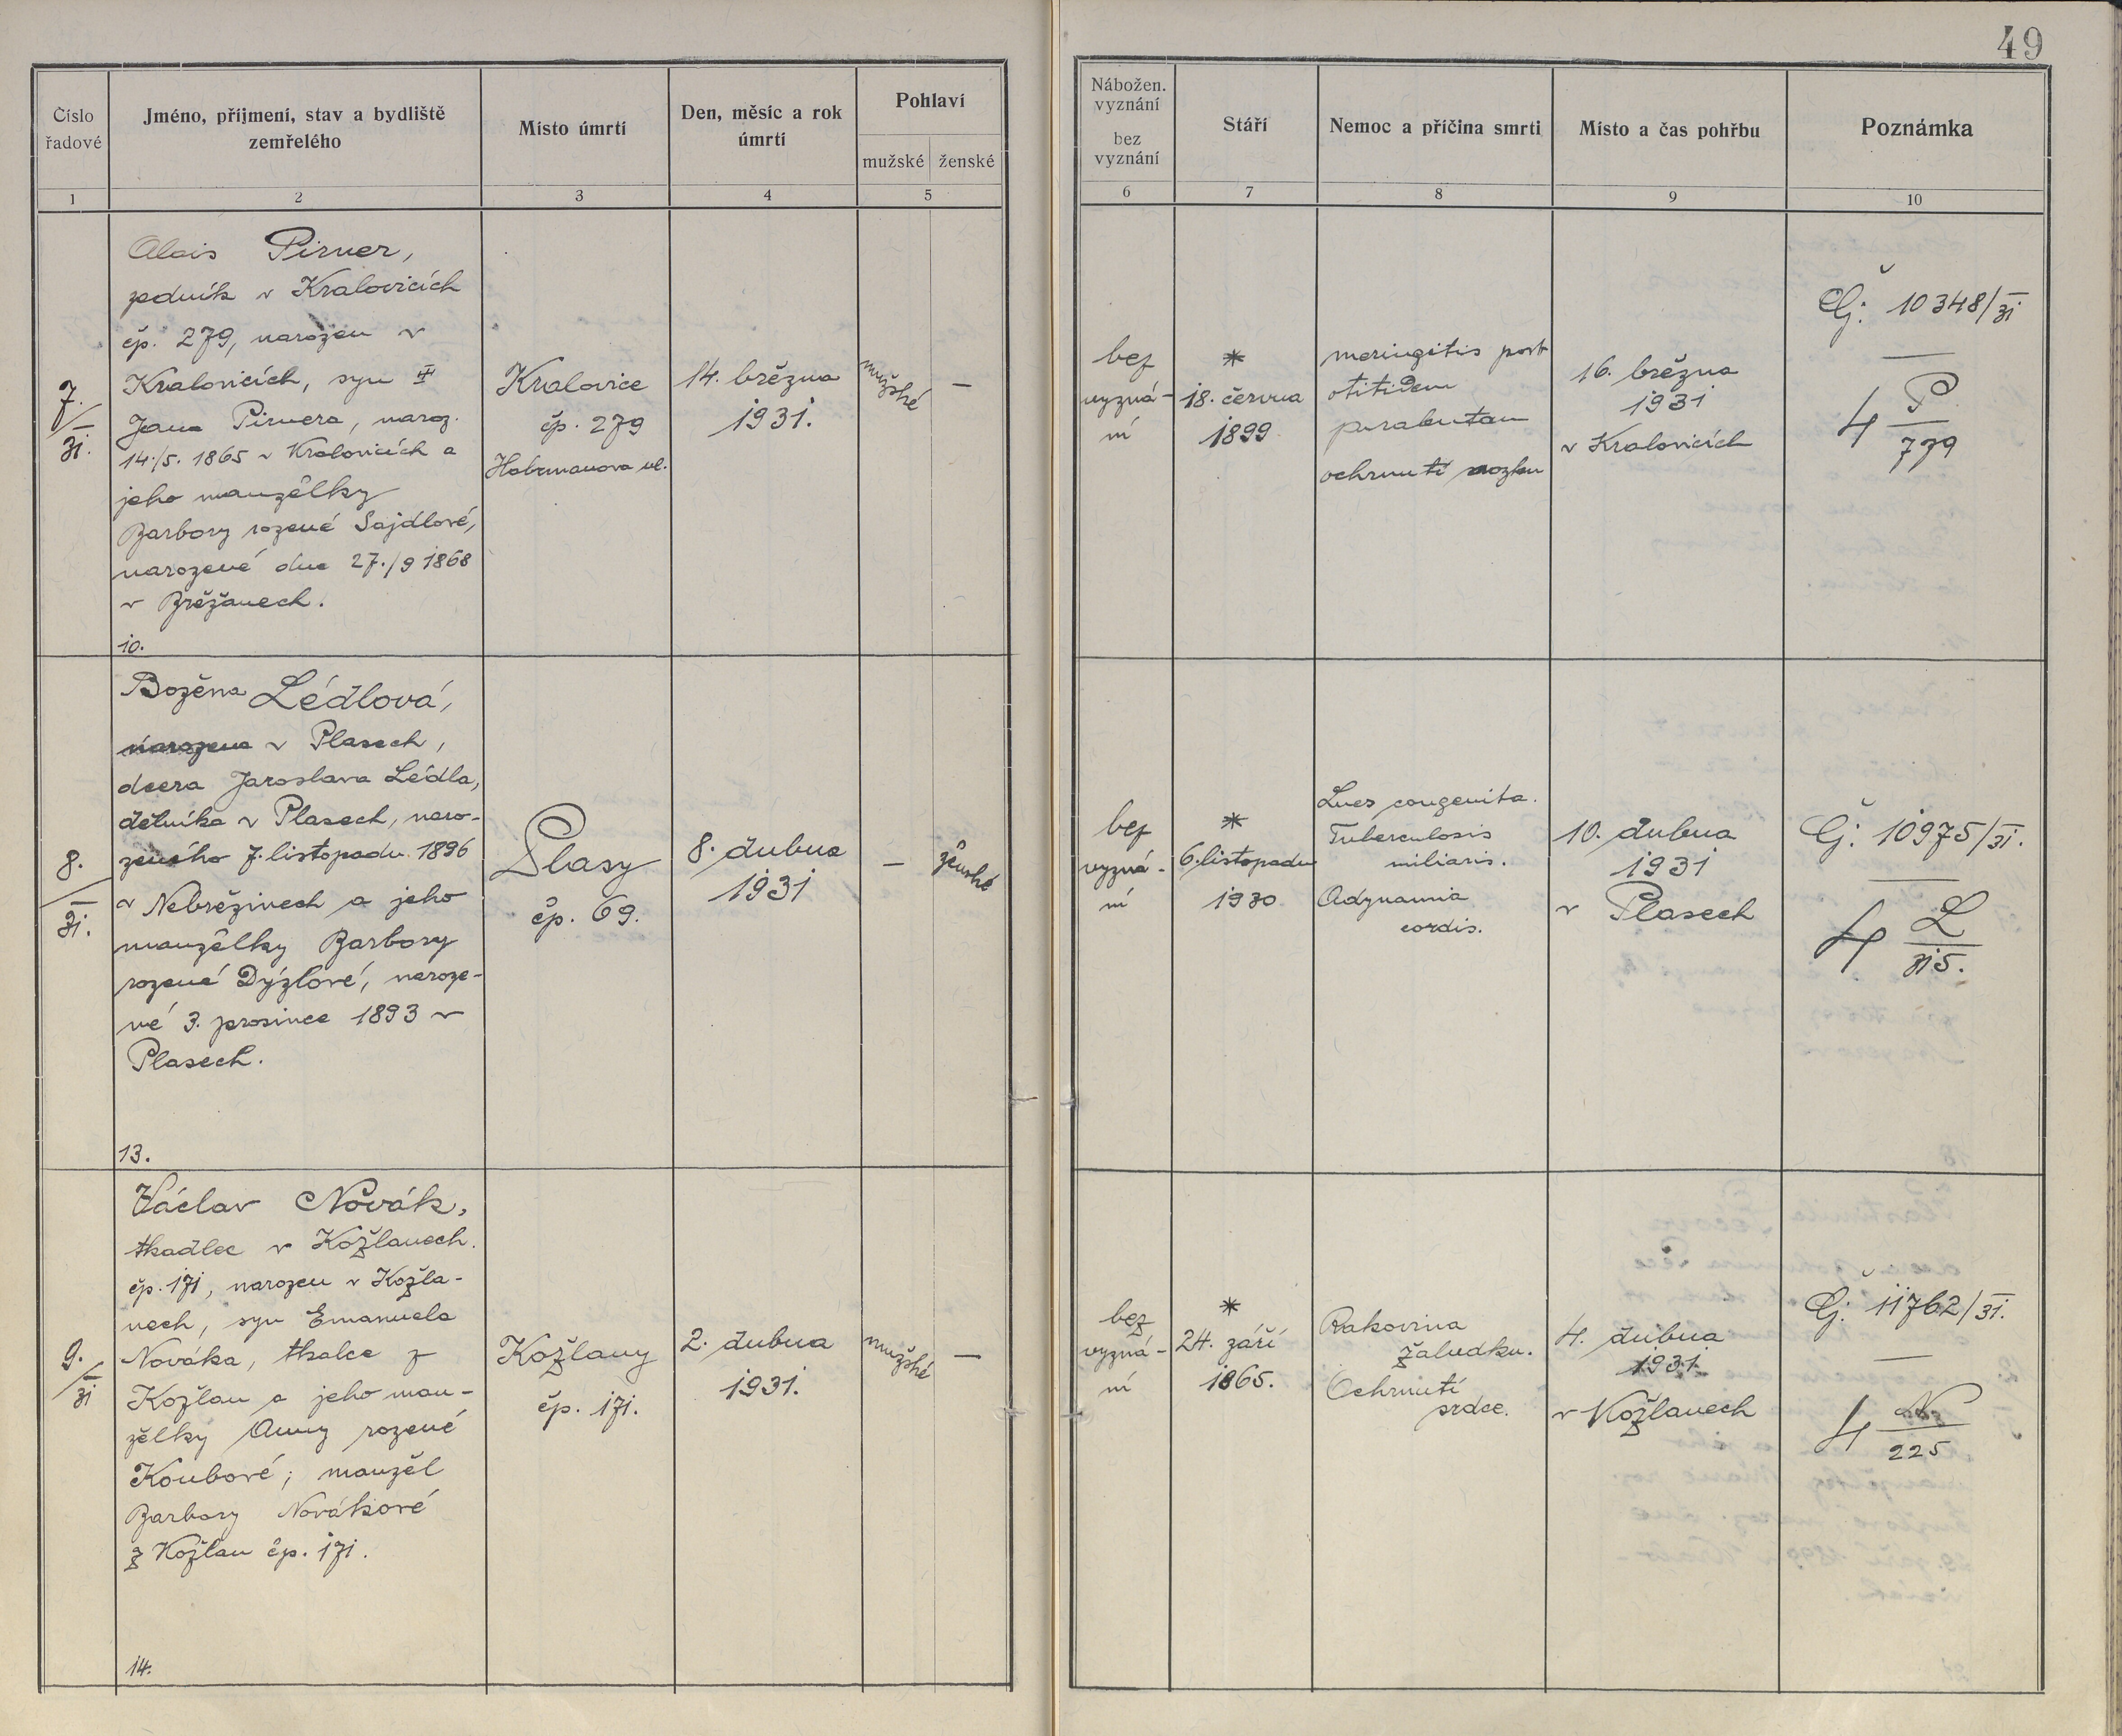 49
Číslo
řadové
Jméno, příjmení, stav a bydliště
zemřelého
Místo úmrtí
Den, měsíc a rok
úmrtí
Pohlaví
mužské ženské
Nábožen.
vyznání
bez
vyznání
Stáří
Nemoc a příčina smrti
Místo a čas pohřbu
Poznámka
1 2 3 4 5 6 7 8 9 10
7.
31.
Alois Pirner,
zedník v Kralovicích
čp. 279, narozen v
Kralovicích, syn
Jana Pirnera, naroz.
14./5. 1865 v Kralovicích a
jeho manželky
Barbory rozené Sajdlové,
narozené dne 27./9 1868
v Břežanech.
10.
Kralovice
čp. 279
Habrmanova ul.
14. března
1931.
mužské
—
bez
vyzná-
ní
*
18. června
1899
meningitis post
otitidem
purulentam
ochrnutí mozku
16. března
1931
v Kralovicích
Čj: 10348/31
4 P
779
8.
31.
Božena Lédlová,
narozena v Plasech,
dcera Jaroslava Lédla,
dělníka v Plasech, naro-
zeného 7. listopadu 1896
v Nebřezinech a jeho
manželky Barbory
rozené Dýzlové, naroze-
né 3. prosince 1893 v
Plasech.
13.
Plasy
čp. 69.
8. dubna
1931
—
ženské
bez
vyzná-
ní
*
6. listopadu
1930
Lues congenita.
Tuberculosis
miliaris.
Adynamia
cordis.
10. dubna
1931
v Plasech
Čj: 10975/31.
4 L
315.
9.
31
Václav Novák,
tkadlec v Kožlanech
čp. 171, narozen v Kožla-
nech, syn Emanuela
Nováka, tkalce z
Kožlan a jeho man-
želky Anny rozené
Koubové; manžel
Barbory Novákové
z Kožlan čp. 171.
14.
Kožlany
čp. 171.
2. dubna
1931.
mužské
—
bez
vyzná-
ní
*
24. září
1865.
Rakovina
žaludku.
Ochrnutí
srdce.
4. dubna
1931.
v Kožlanech
Čj: 11762/31.
4 N
225